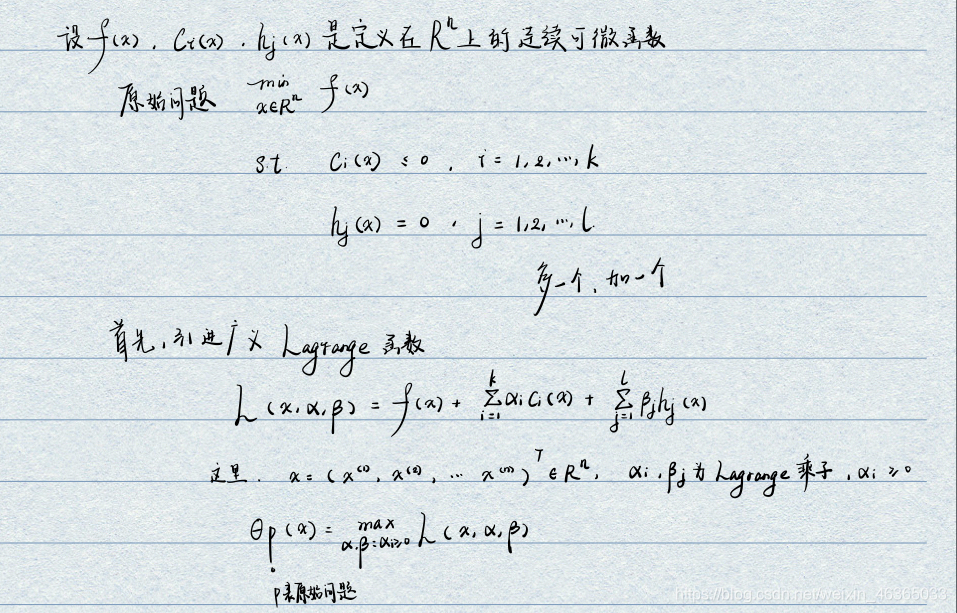 设 f(x), Ci(x), hj(x) 是定义在 Rⁿ 上的连续可微函数
原始问题 min x∈Rⁿ f(x)
s.t. Ci(x) ≤ 0, i = 1,2,…,k
hj(x) = 0, j = 1,2,…,l.
多一个,加一个
首先,引进广义 Lagrange 函数
L(x,α,β) = f(x) + Σ_{i=1}^{k} αi Ci(x) + Σ_{j=1}^{l} βj hj(x)
这里. x = (x⁽¹⁾, x⁽²⁾, … x⁽ⁿ⁾)ᵀ ∈ Rⁿ, αi, βj 为 Lagrange 乘子, αi ≥ 0
θp(x) = max α,β:αi≥0 L(x,α,β)
p表原始问题
https://blog.csdn.net/weixin_46365033